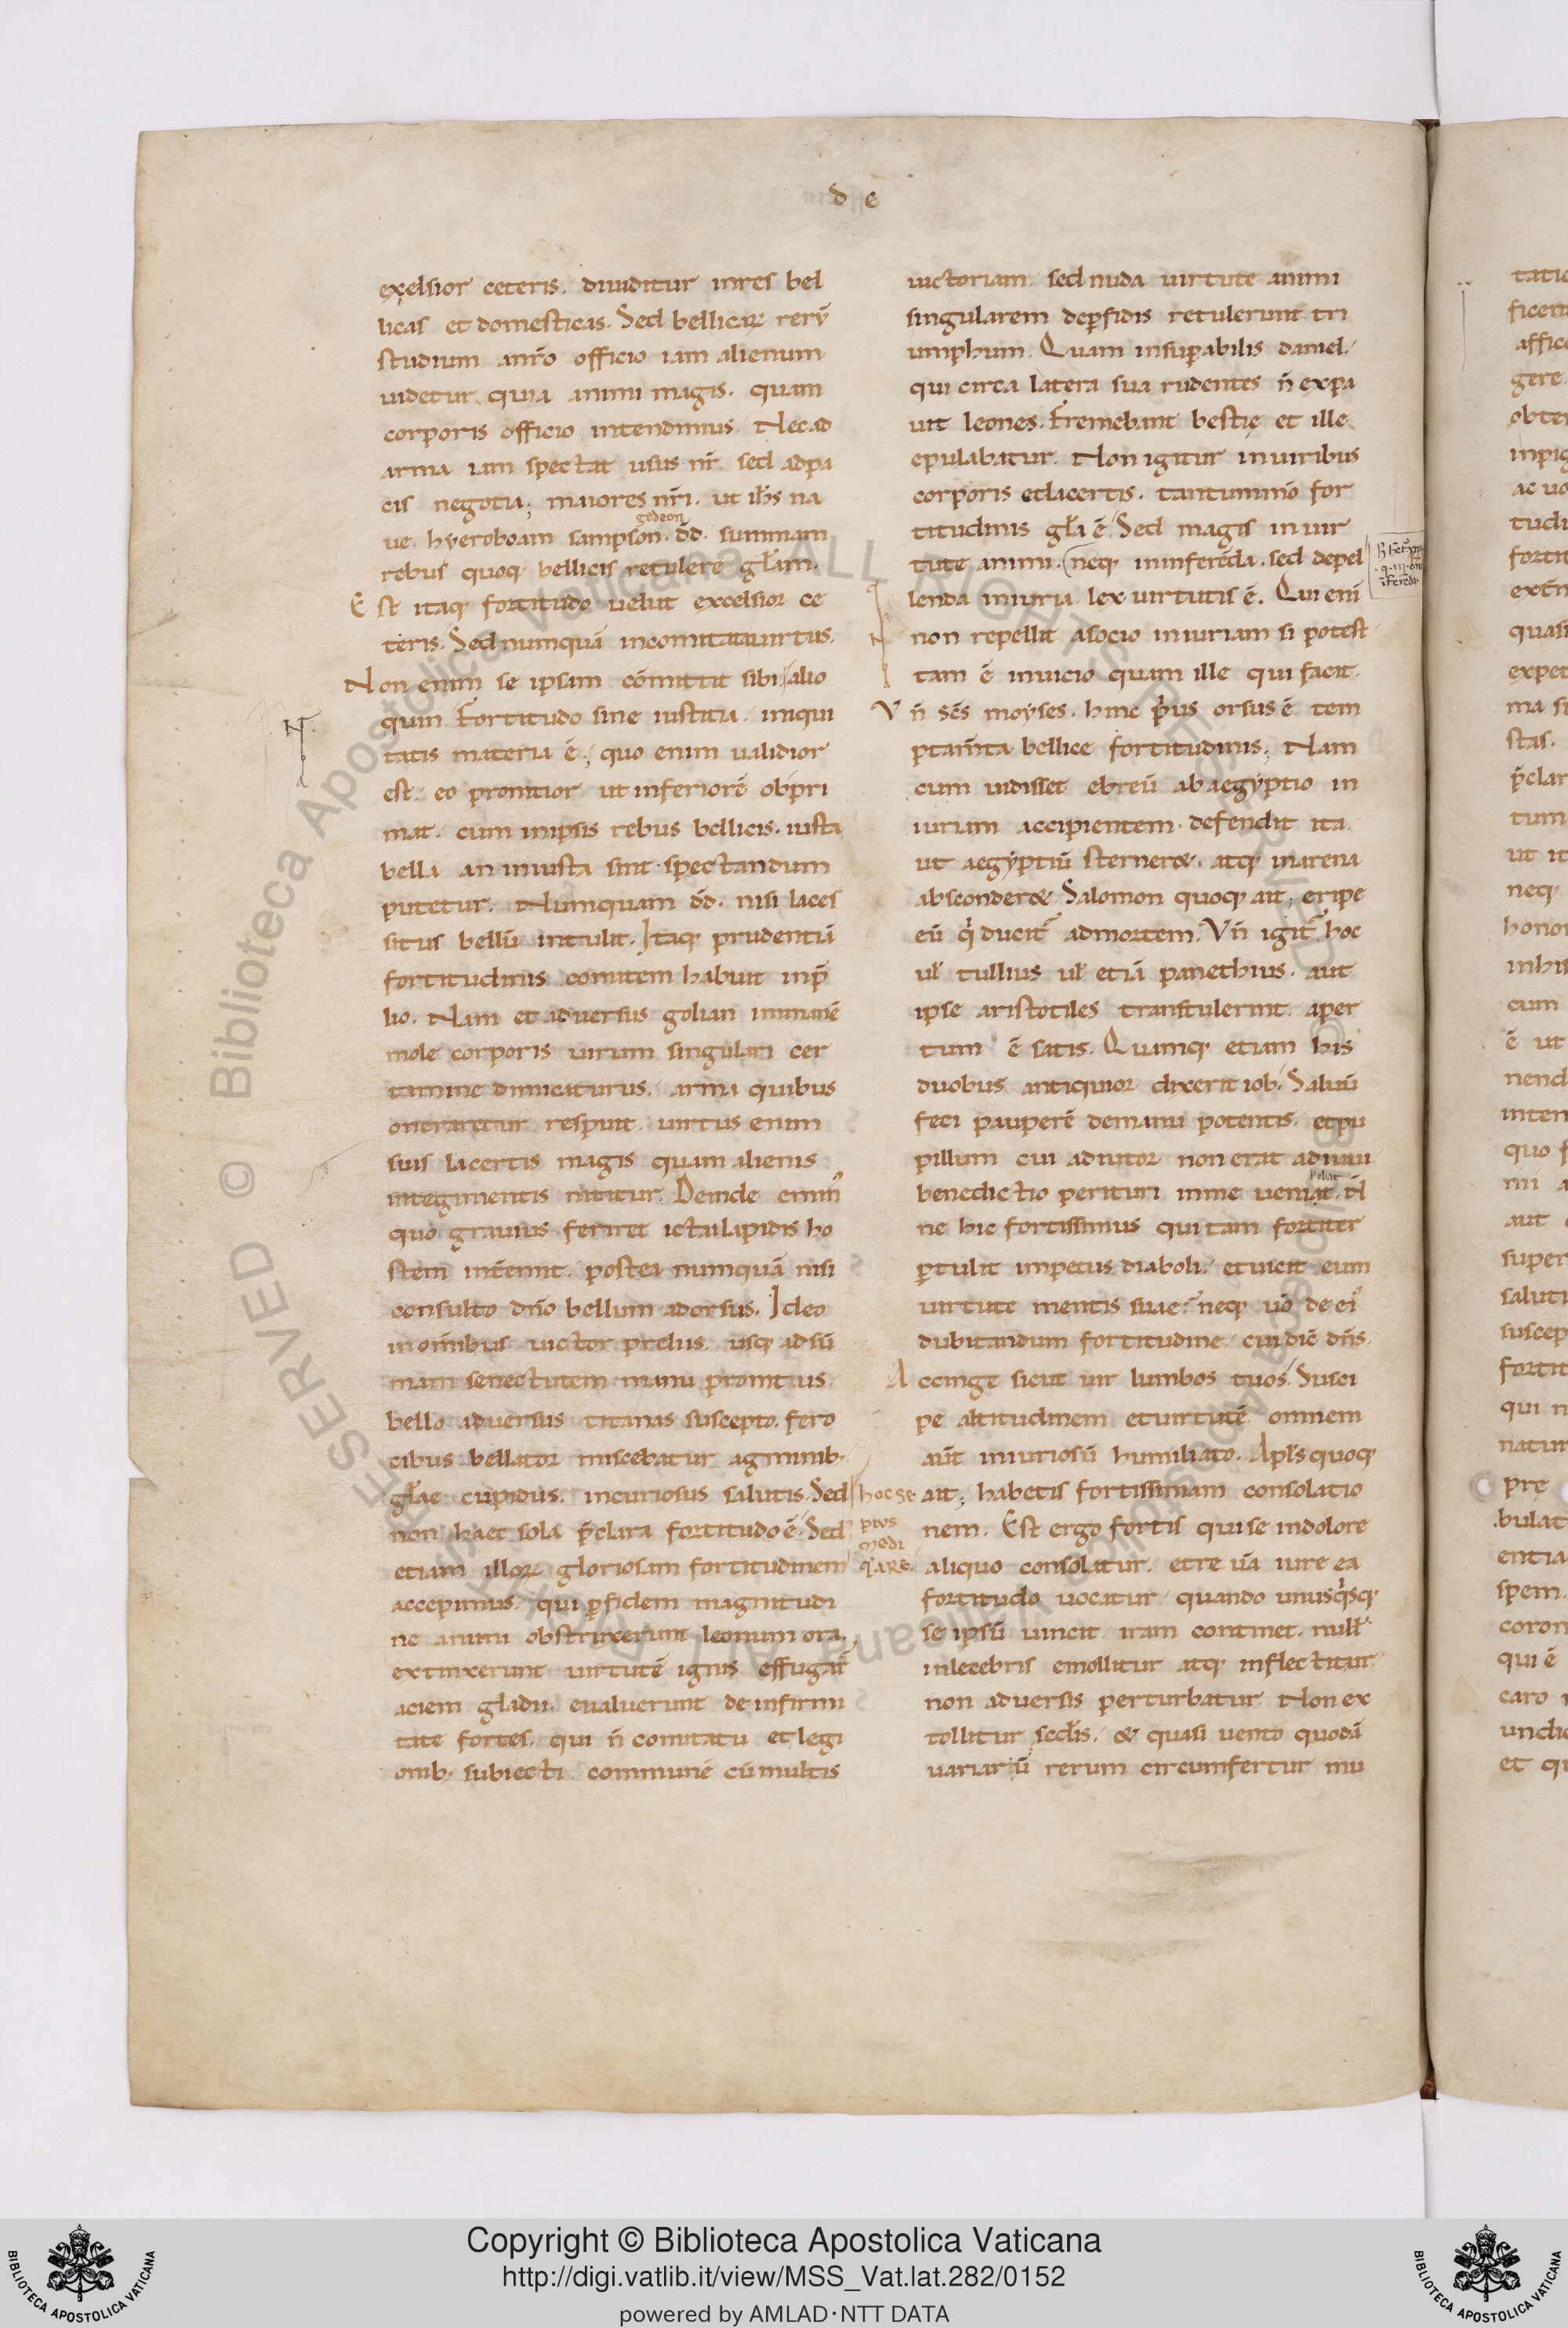 d e
excelsior ceteris. diuiditur inres bel
licas et domesticas. Sed bellicaꝝ rerū
studium anr̄o officio iam alienum
uidetur quia animi magis. quam
corporis officio intendimus Necad
arma iam spectat usus nr̄. sed adpa
cis negotia; maiores nr̄i. ut ih̄s na
gedeon
ue. hyeroboam sampson. d̄d. summam
rebus quoq; bellicis retulere gl̄am.
Est itaq; fortitudo uelut excelsior ce
teris. Sed numquā incomitata uirtus.
Non enim se ipsam cōmittit sibi alio
quin Fortitudo sine iustitia. iniqui
tatis materia ē; quo enim ualidior
est. eo promtior ut inferiorē obpri
mat. cum inipsis rebus bellicis. iusta
bella an iniusta sint spectandum
putetur. Numquam d̄d. nisi laces
situs bellū intulit. Itaq; prudentiā
fortitudinis comitem habuit inp̄
lio. Nam et aduersus golian inmanē
mole corporis uirum singulari cer
tamine dimicaturus. arma quibus
oneraretur respuit. uirtus enim
suis lacertis magis quam alienis
integumentis nititur. Deinde emin̄
quo grauius feriret ictu lapidis ho
stem intēmit. postea numquā nisi
consulto dn̄o bellum adorsus. Ideo
in om̄ibus uictor preliis. usq; ad sū
mam senectutem manu promtus
bello aduersus titanas suscepto. fero
cibus bellator miscebatur agminib;
gl̄ae cupidus. incuriosus salutis. Sed
non haec sola p̄clara fortitudo ē. Sed
etiam illoꝝ gloriosam fortitudinem
accepimus. qui ꝑfidem magnitudi
ne animi obstruxerunt leonum ora.
extinxerunt uirtutē ignis effugar̄t
aciem gladii. eualuerunt de infirmi
tate fortes. qui n̄ comitatu et legi
onib; subiecti communē cū multis
hoc se
pius
medi
q̄are.
uictoriam. sed nuda uirtute animi
singularem deꝑfidis retulerunt tri
umphum. Quam insuꝑabilis daniel.
qui circa latera sua rudentes n̄ expa
uit leones. Fremebant bestię et ille
epulabatur. Non igitur in uiribus
corporis et lacertis. tantummō for
titudinis gl̄a ē. Sed magis in uir
tute animi. neq; in inferēda. sed depel
lenda iniuria lex uirtutis ē. Qui eni
non repellit asocio iniuriam si potest
tam ē inuicio quam ille qui facit.
Vn̄ sc̄s moyses. hinc p̄us orsus ē tem
ptam̄ta bellice fortitudinis. Nam
cum uidisset ebreū ab aegyptio in
iuriam accipientem. defendit ita
ut aegyptiū sterner&. atq; inarena
absconder& Salomon quoq; ait; eripe
eū q̄ ducit̄ admortem. Vn̄ igit̄ hoc
ul̄ tullius ul̄ etiā panethius. aut
ipse aristotiles transtulerint. aper
tum ē satis. Quamq; etiam his
duobus antiquior dixerit iob. Saluū
feci pauperē demanu potentis. et pu
pillum cui adiutor non erat adiuui
benedictio perituri inme ueniat.
ne hic fortissimus qui tam fortiter
ꝑtulit impetus diaboli. et uicit eum
uirtute mentis suae. neq; uō de ei'
dubitandum fortitudine cui dic̄ dn̄s.
Accinge sicut uir lumbos tuos. Susci
pe altitudinem et uirtutē. omnem
aūt iniuriosū humiliato. Apl̄s quoq;
ait; habetis fortissimam consolatio
nem. Est ergo fortis qui se indolore
aliquo consolatur. et re uā iure ea
fortitudo uocatur quando unusq̄sq;
se ipsū uincit iram continet. null'
inlecebris emollitur atq; inflectitur.
non aduersis perturbatur Non ex
tollitur secd̄is. & quasi uento quodā
uariarū rerum circumfertur mu
Copyright © Biblioteca Apostolica Vaticana
http://digi.vatlib.it/view/MSS_Vat.lat.282/0152
powered by AMLAD·NTT DATA
BIBLIOTECA APOSTOLICA VATICANA
BIBLIOTECA APOSTOLICA VATICANA